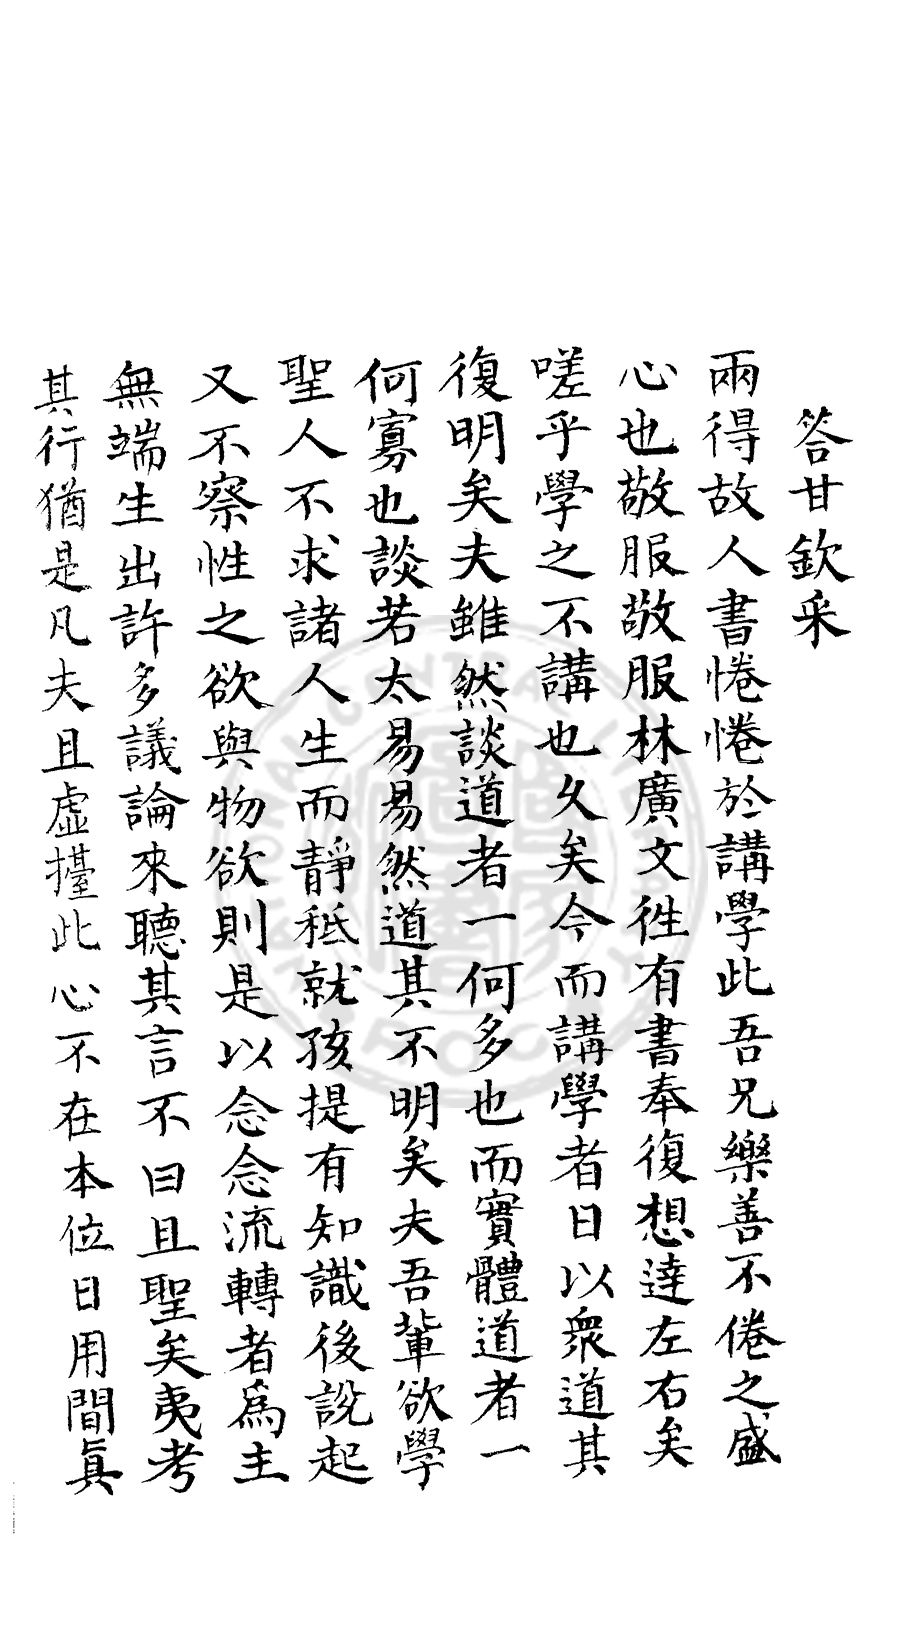 答甘欽采
兩得故人書惓惓於講學此吾兄樂善不倦之盛
心也敬服敬服林廣文徃有書奉復想達左右矣
嗟乎學之不講也久矣今而講學者日以衆道其
復明矣夫雖然談道者一何多也而實體道者一
何寡也談若太易易然道其不明矣夫吾輩欲學
聖人不求諸人生而靜秪就孩提有知識後說起
又不察性之欲與物欲則是以念念流轉者爲主
無端生出許多議論來聽其言不曰且聖矣夷考
其行猶是凡夫且虛擡此心不在本位日用間眞